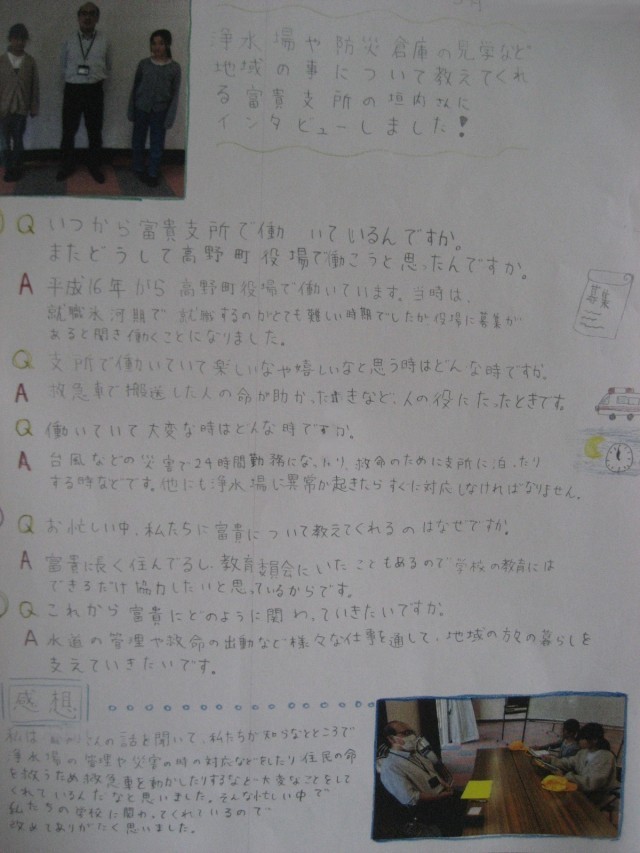 浄水場や防災倉庫の見学など
地域の事について教えてくれ
る富貴支所の垣内さんに
インタビューしました!
Q いつから富貴支所で働いているんですか。
またどうして高野町役場で働こうと思ったんですか。
A 平成16年から高野町役場で働いています。当時は、
就職氷河期で就職するのがとても難しい時期でしたが役場に募集が
あると聞き働くことになりました。
募集
Q 支所で働いていて楽しいなや嬉しいなと思う時はどんな時ですか。
A 救急車で搬送した人の命が助かったときなど、人の役にたったときです。
Q 働いていて大変な時はどんな時ですか。
A 台風などの災害で24時間勤務になったり、救命のために支所に泊ったり
する時などです。他にも浄水場に異常が起きたらすぐに対応しなければなりません。
Q お忙しい中、私たちに富貴について教えてくれるのはなぜですか。
A 富貴に長く住んでるし、教育委員会にいたこともあるので学校の教育には
できるだけ協力したいと思っているからです。
Q これから富貴にどのように関わっていきたいですか。
A 水道の管理や救命の出動など様々な仕事を通して、地域の方の暮らしを
支えていきたいです。
感想
私は さんの話を聞いて、私たちが知らなところで
浄水場の管理や災害の時の対応などをしたり住民の命
を救うため救急車を動かしたりするなど大変なことをして
くれているんだなと思いました。そんな忙しい中で
私たちの学校に関わってくれているので
改めてありがたく思いました。